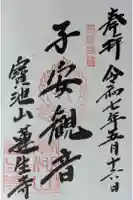 奉拝 令和七年五月十六日
子安観音
宝池山蓮生寺